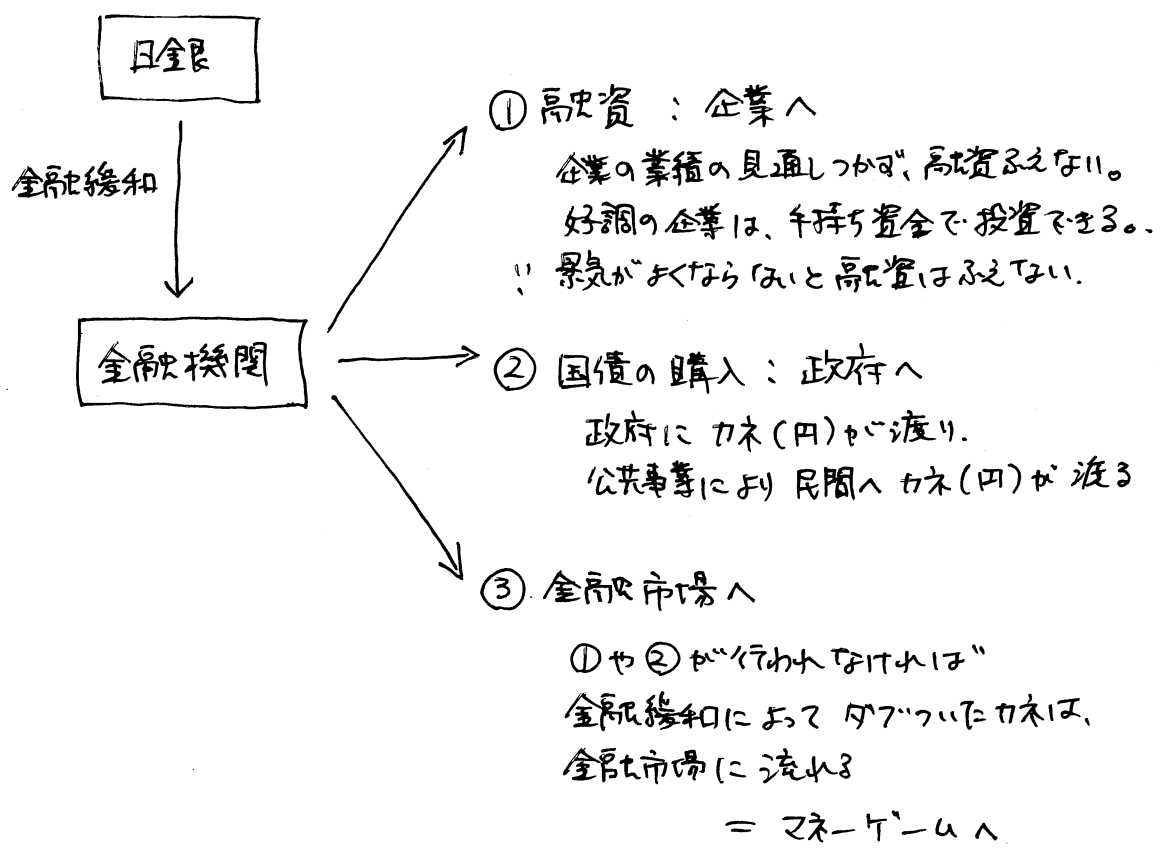 日銀
金融緩和
金融機関
① 融資 : 企業へ
企業の業績の見通しつかず、融資ふえない。
好調の企業は、手持ち資金で投資できる。
∵ 景気がよくならないと融資はふえない.
② 国債の購入 : 政府へ
政府に カネ(円)が渡り.
公共事業により 民間へ カネ(円)が 渡る
③ 金融市場へ
①や②が行われなければ
金融緩和によって ダブついたカネは、
金融市場に流れる
= マネーゲームへ